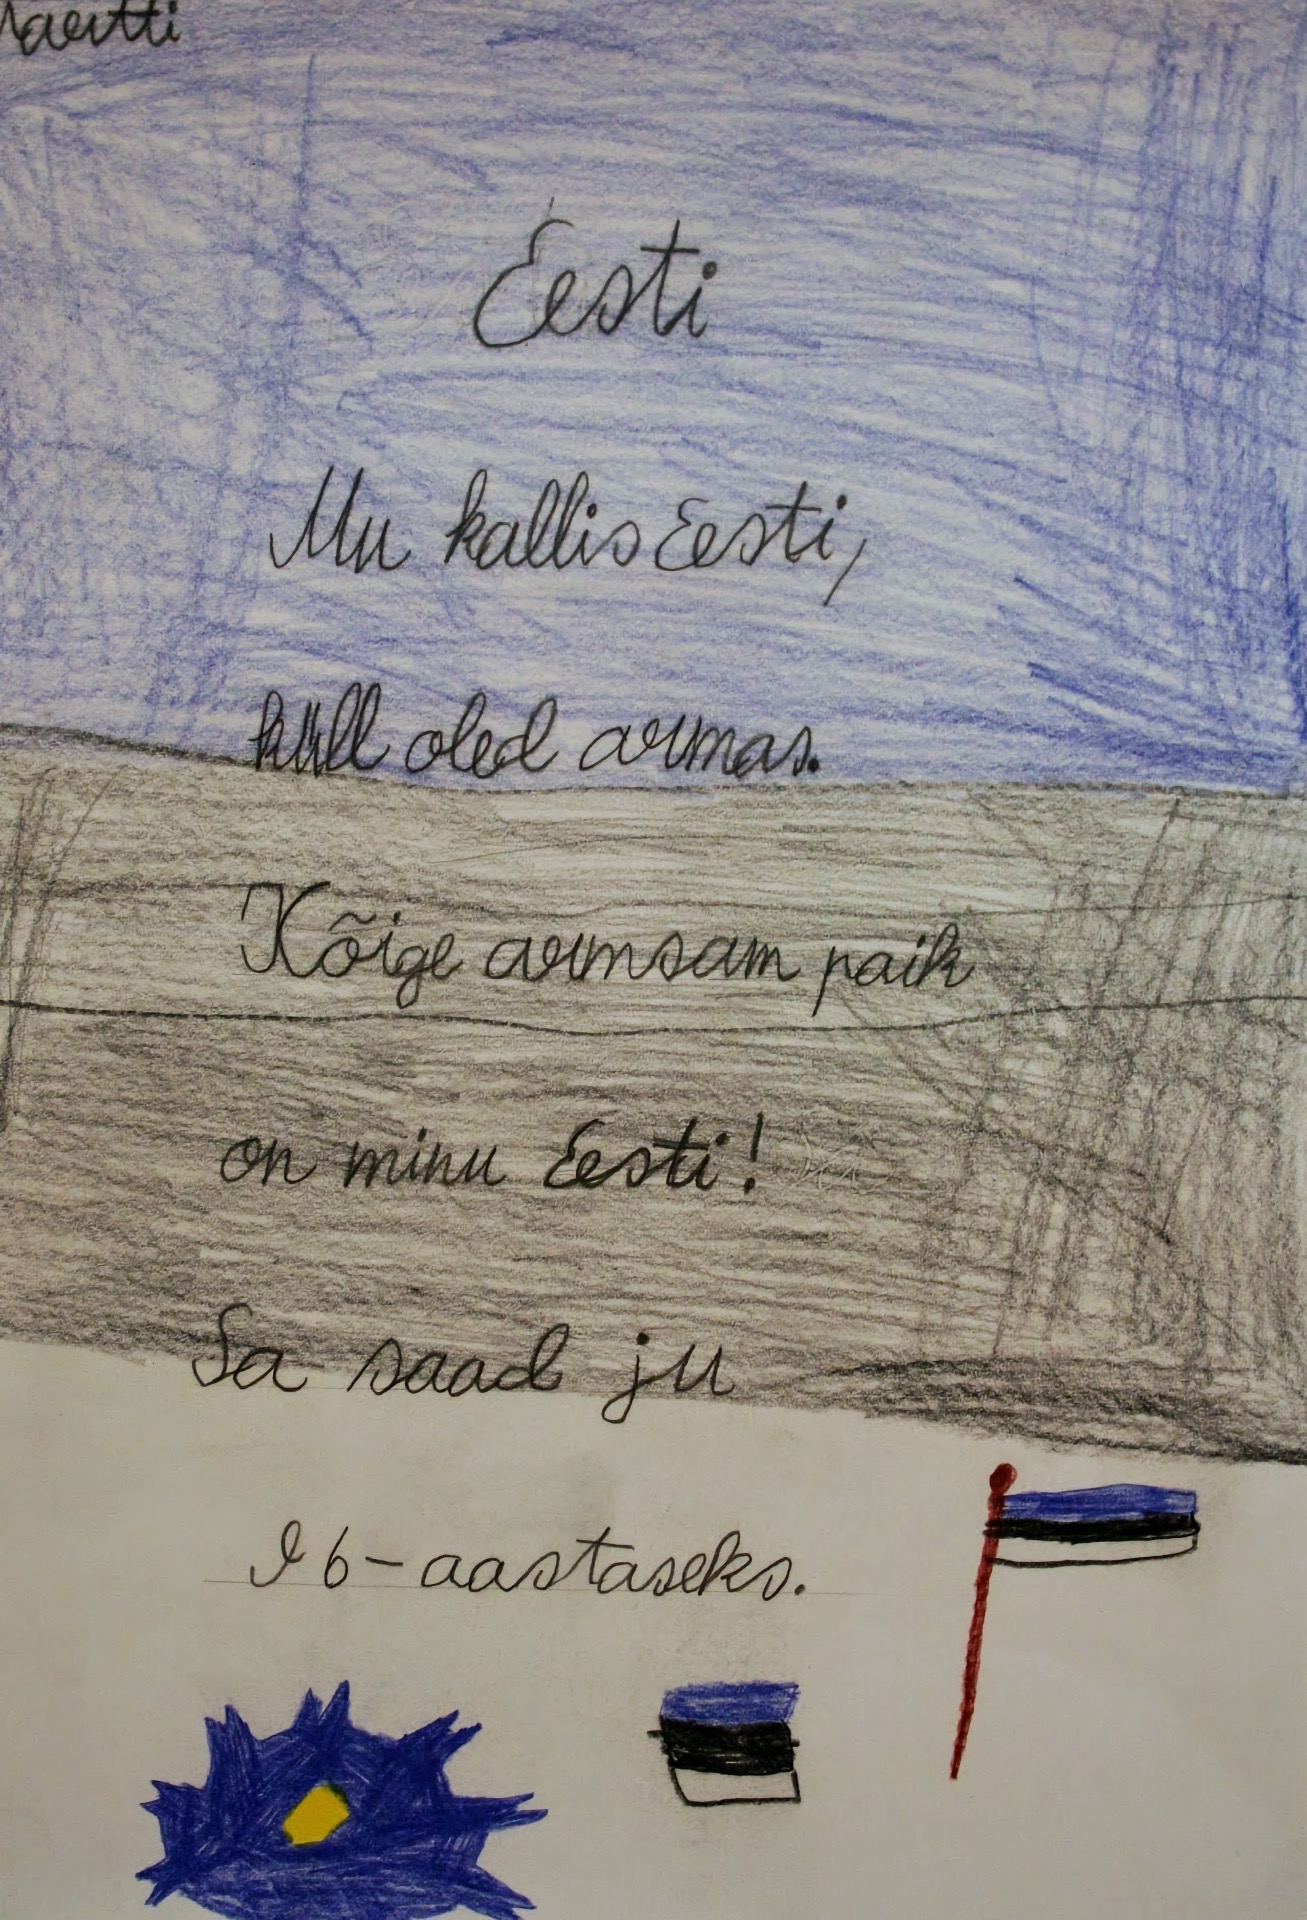 Eesti
Mu kallis Eesti,
küll oled armas.
Kõige armsam paik
on minu Eesti!
Sa saad ju
96-aastaseks.